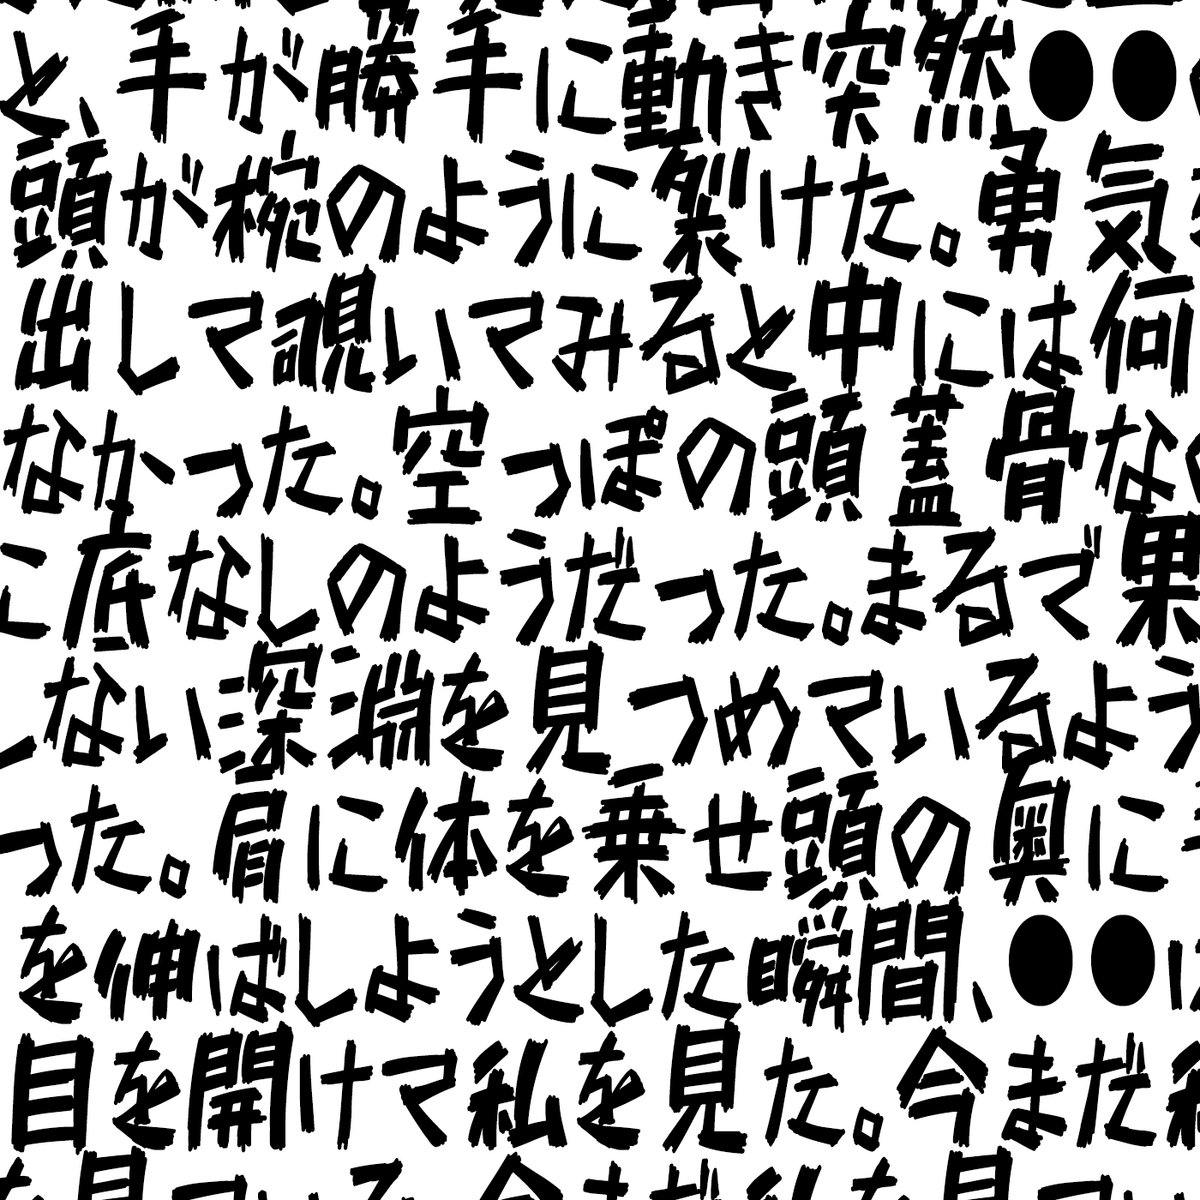 と、手が勝手に動き突然●●
頭が椀のように裂けた。勇気
出して覗いてみると中には何
なかった。空っぽの頭蓋骨な
こ底なしのようだった。まるで果
しない深淵を見つめているよう
った。肩に体を乗せ頭の奥に
を伸ばしようとした瞬間、●●は
目を開けて私を見た。今まだ私